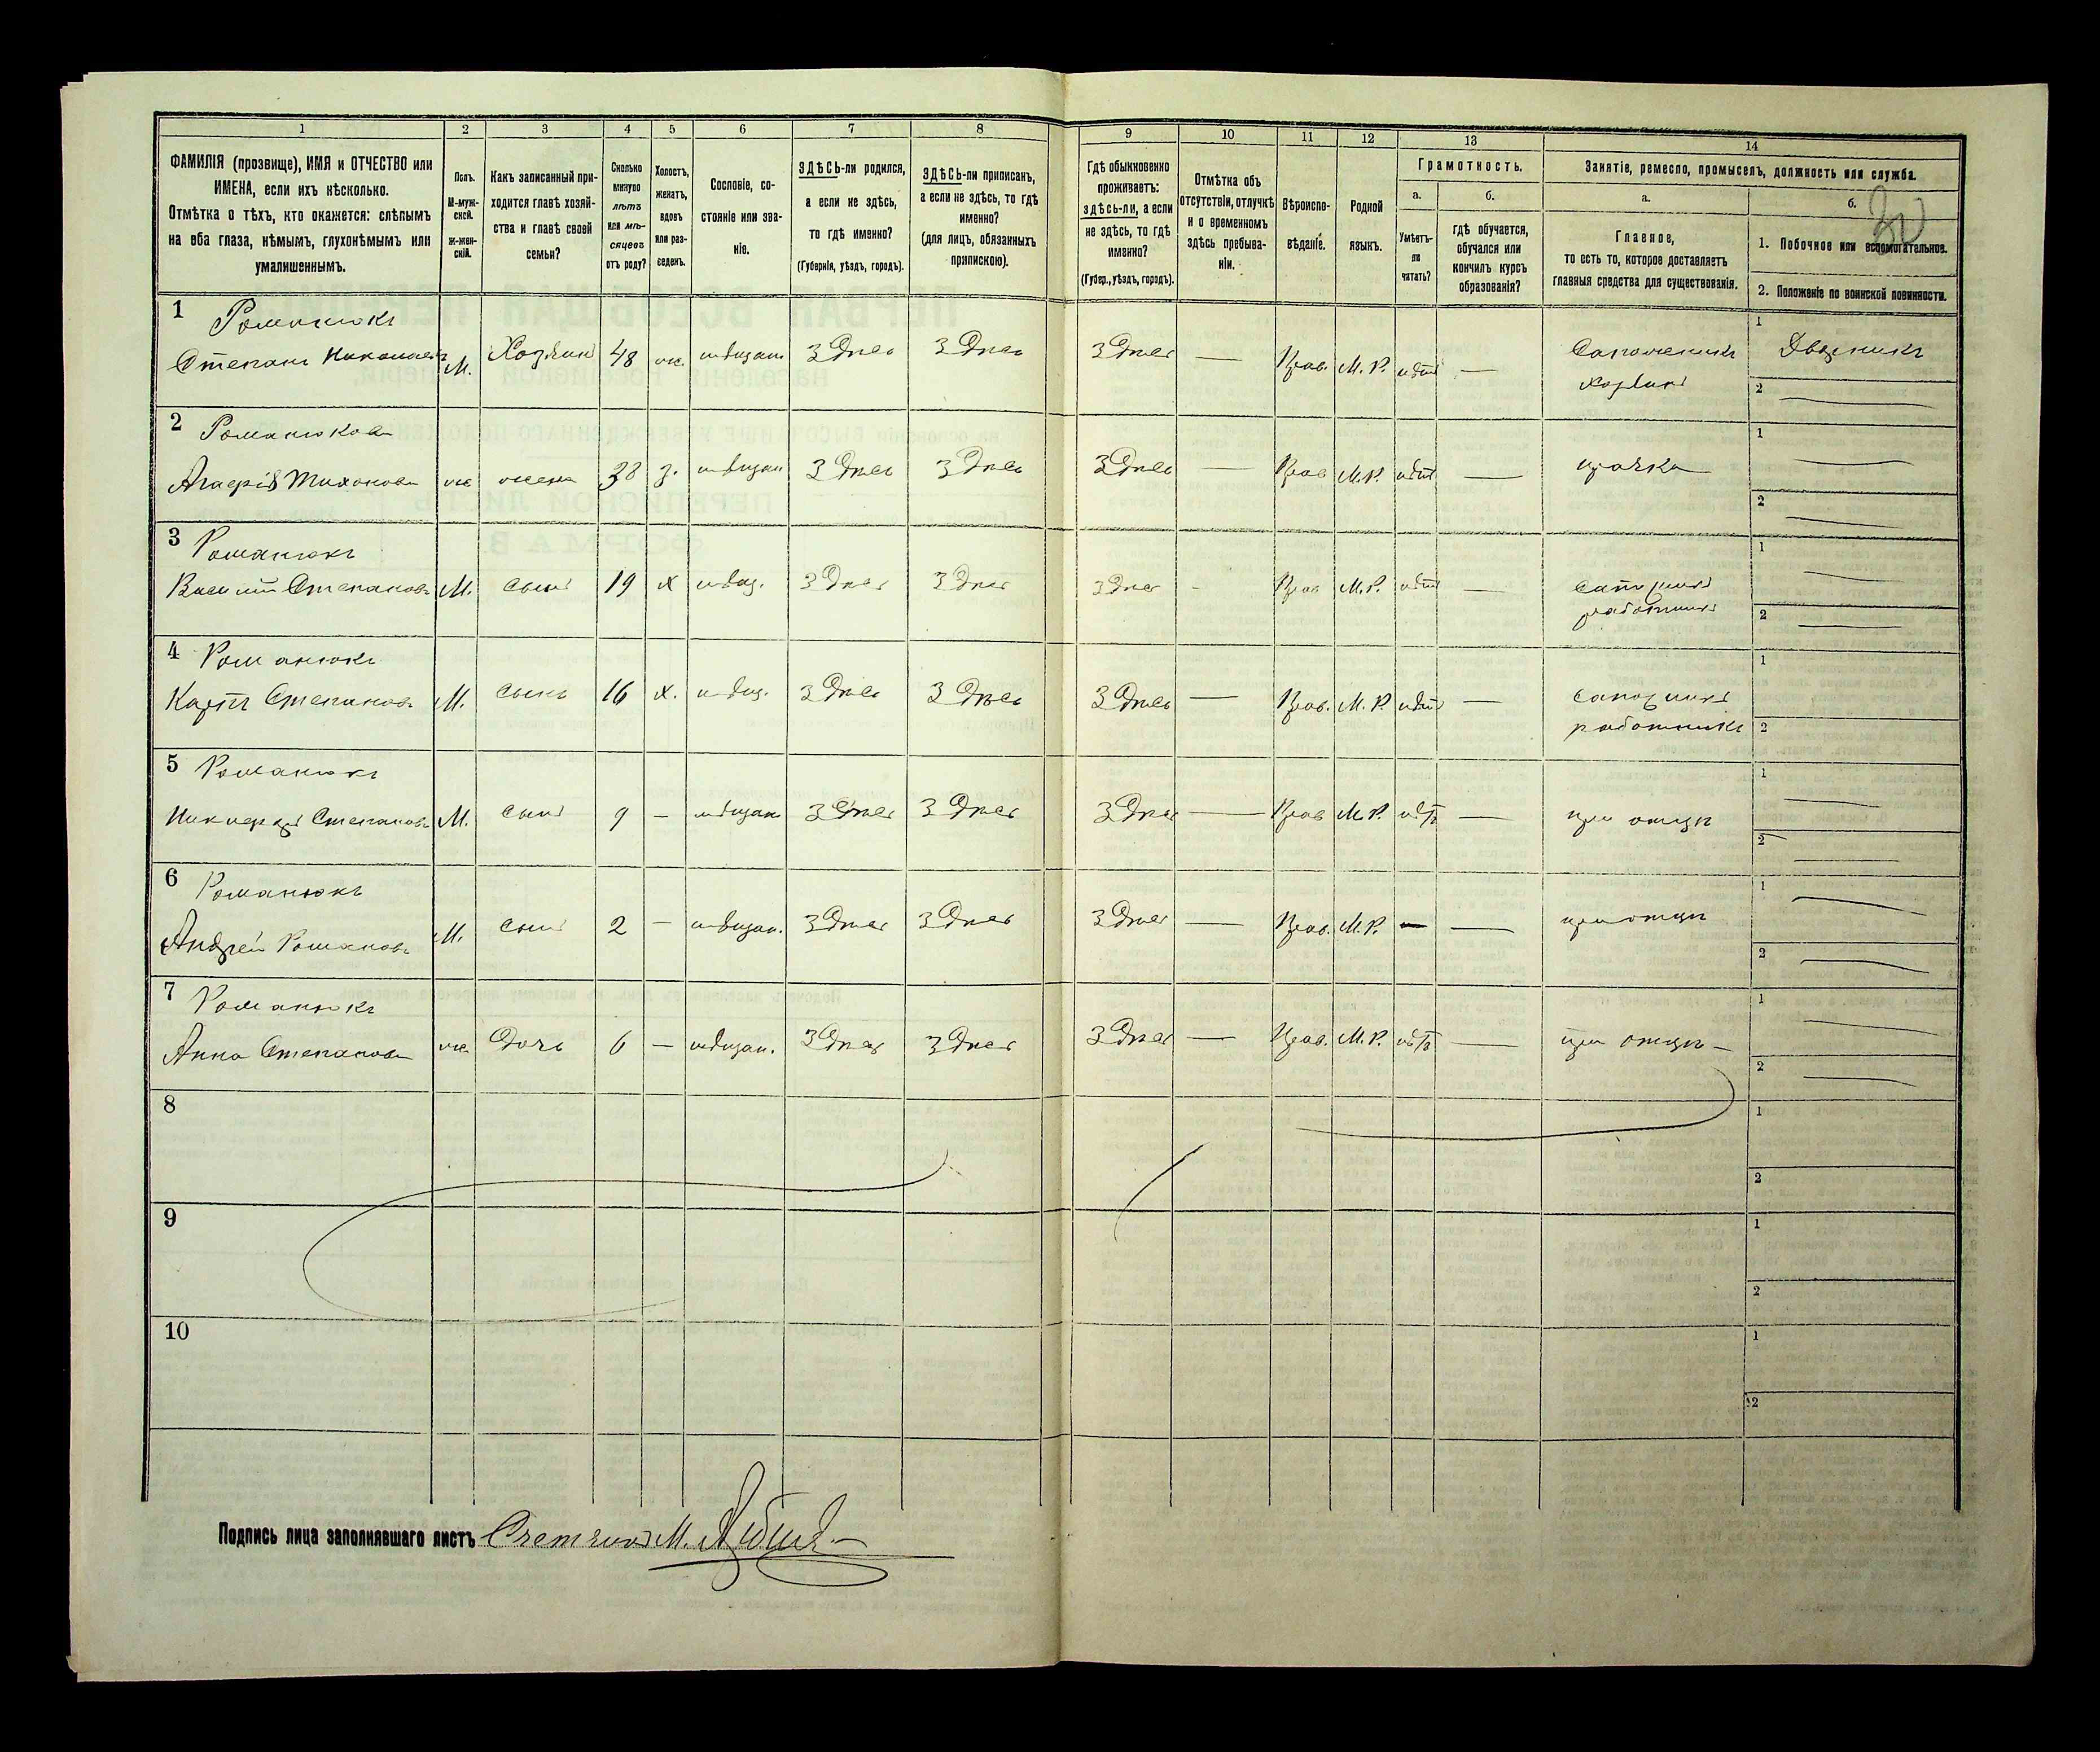 1
2
3
4
5
6
7
8
ФАМИЛІЯ (прозвище), ИМЯ и ОТЧЕСТВО или
ИМЕНА, если ихъ нѣсколько.
Отмѣтка о тѣхъ, кто окажется: слѣпымъ
на оба глаза, нѣмымъ, глухонѣмымъ или
умалишеннымъ.
Полъ.
М-муж-
ской.
Ж-жен-
скій.
Какъ записанный при-
ходится главѣ хозяй-
ства и главѣ своей
семьи?
Сколько
минуло
лѣтъ
или мѣ-
сяцевъ
отъ роду?
Холостъ,
женатъ,
вдовъ
или раз-
веденъ.
Сословіе, со-
стояніе или зва-
ніе.
ЗДѢСЬ-ли родился,
а если не здѣсь,
то гдѣ именно?
(Губернія, уѣздъ, городъ).
ЗДѢСЬ-ли приписанъ,
а если не здѣсь, то гдѣ
именно?
(для лицъ, обязанныхъ
припискою).
9
10
11
12
13
14
Гдѣ обыкновенно
проживаетъ:
здѣсь-ли, а если
не здѣсь, то гдѣ
именно?
(Губер., уѣздъ, городъ).
Отмѣтка объ
отсутствіи, отлучкѣ
и о временномъ
здѣсь пребыва-
ніи.
Вѣроиспо-
вѣданіе.
Родной
языкъ.
Грамотность.
а.
Умѣетъ-
ли
читать?
б.
гдѣ обучается,
обучался или
кончилъ курсъ
образованія?
Занятіе, ремесло, промыселъ, должность или служба.
а.
Главное,
то есть то, которое доставляетъ
главныя средства для существованія.
б.
1. Побочное или вспомогательное.
2. Положеніе по воинской повинности.
1 Романюкъ
Степанъ Николаевъ М. Хозяинъ 48 ж. мѣщан. Здѣсь Здѣсь Здѣсь — Прав. М. Р. нѣтъ — Сапожникъ
хозяинъ
1 Дворникъ
2 —
2 Романюкова
Тихонова ж жена 38 з. мѣщан Здѣсь Здѣсь Здѣсь — Прав М.Р. нѣтъ — прачка
1 —
2 —
3 Романюкъ
Василий Степановъ М. сынъ 19 х мѣщ. Здѣсь Здѣсь Здѣсь - Прав М.Р. нѣтъ —
работникъ
1 —
2 —
4 Романюкъ
Карпъ Степановъ М. Сынъ 16 х. мѣщ. Здѣсь Здѣсь Здѣсь — Прав. М. Р. нѣтъ —
работникъ
1
2
5 Романюкъ
Степановъ М. Сынъ 9 — мѣщан Здѣсь Здѣсь Здѣсь — Прав М. Р. нѣтъ — при отцѣ
1 —
2 —
6 Романюкъ
Андрей Романовъ М. Сынъ 2 — мѣщан. Здѣсь Здѣсь Здѣсь — Прав. М.Р. — — при отцѣ
1 —
2 —
7 Романюкъ
Анна Степанова ж. Дочь 6 — мѣщан. Здѣсь Здѣсь Здѣсь — Прав. М.Р. нѣтъ — при отцѣ —
1 —
2 —
8
1
2
9
1
2
10
1
2
Подпись лица заполнявшаго листъ Счетчикъ М.